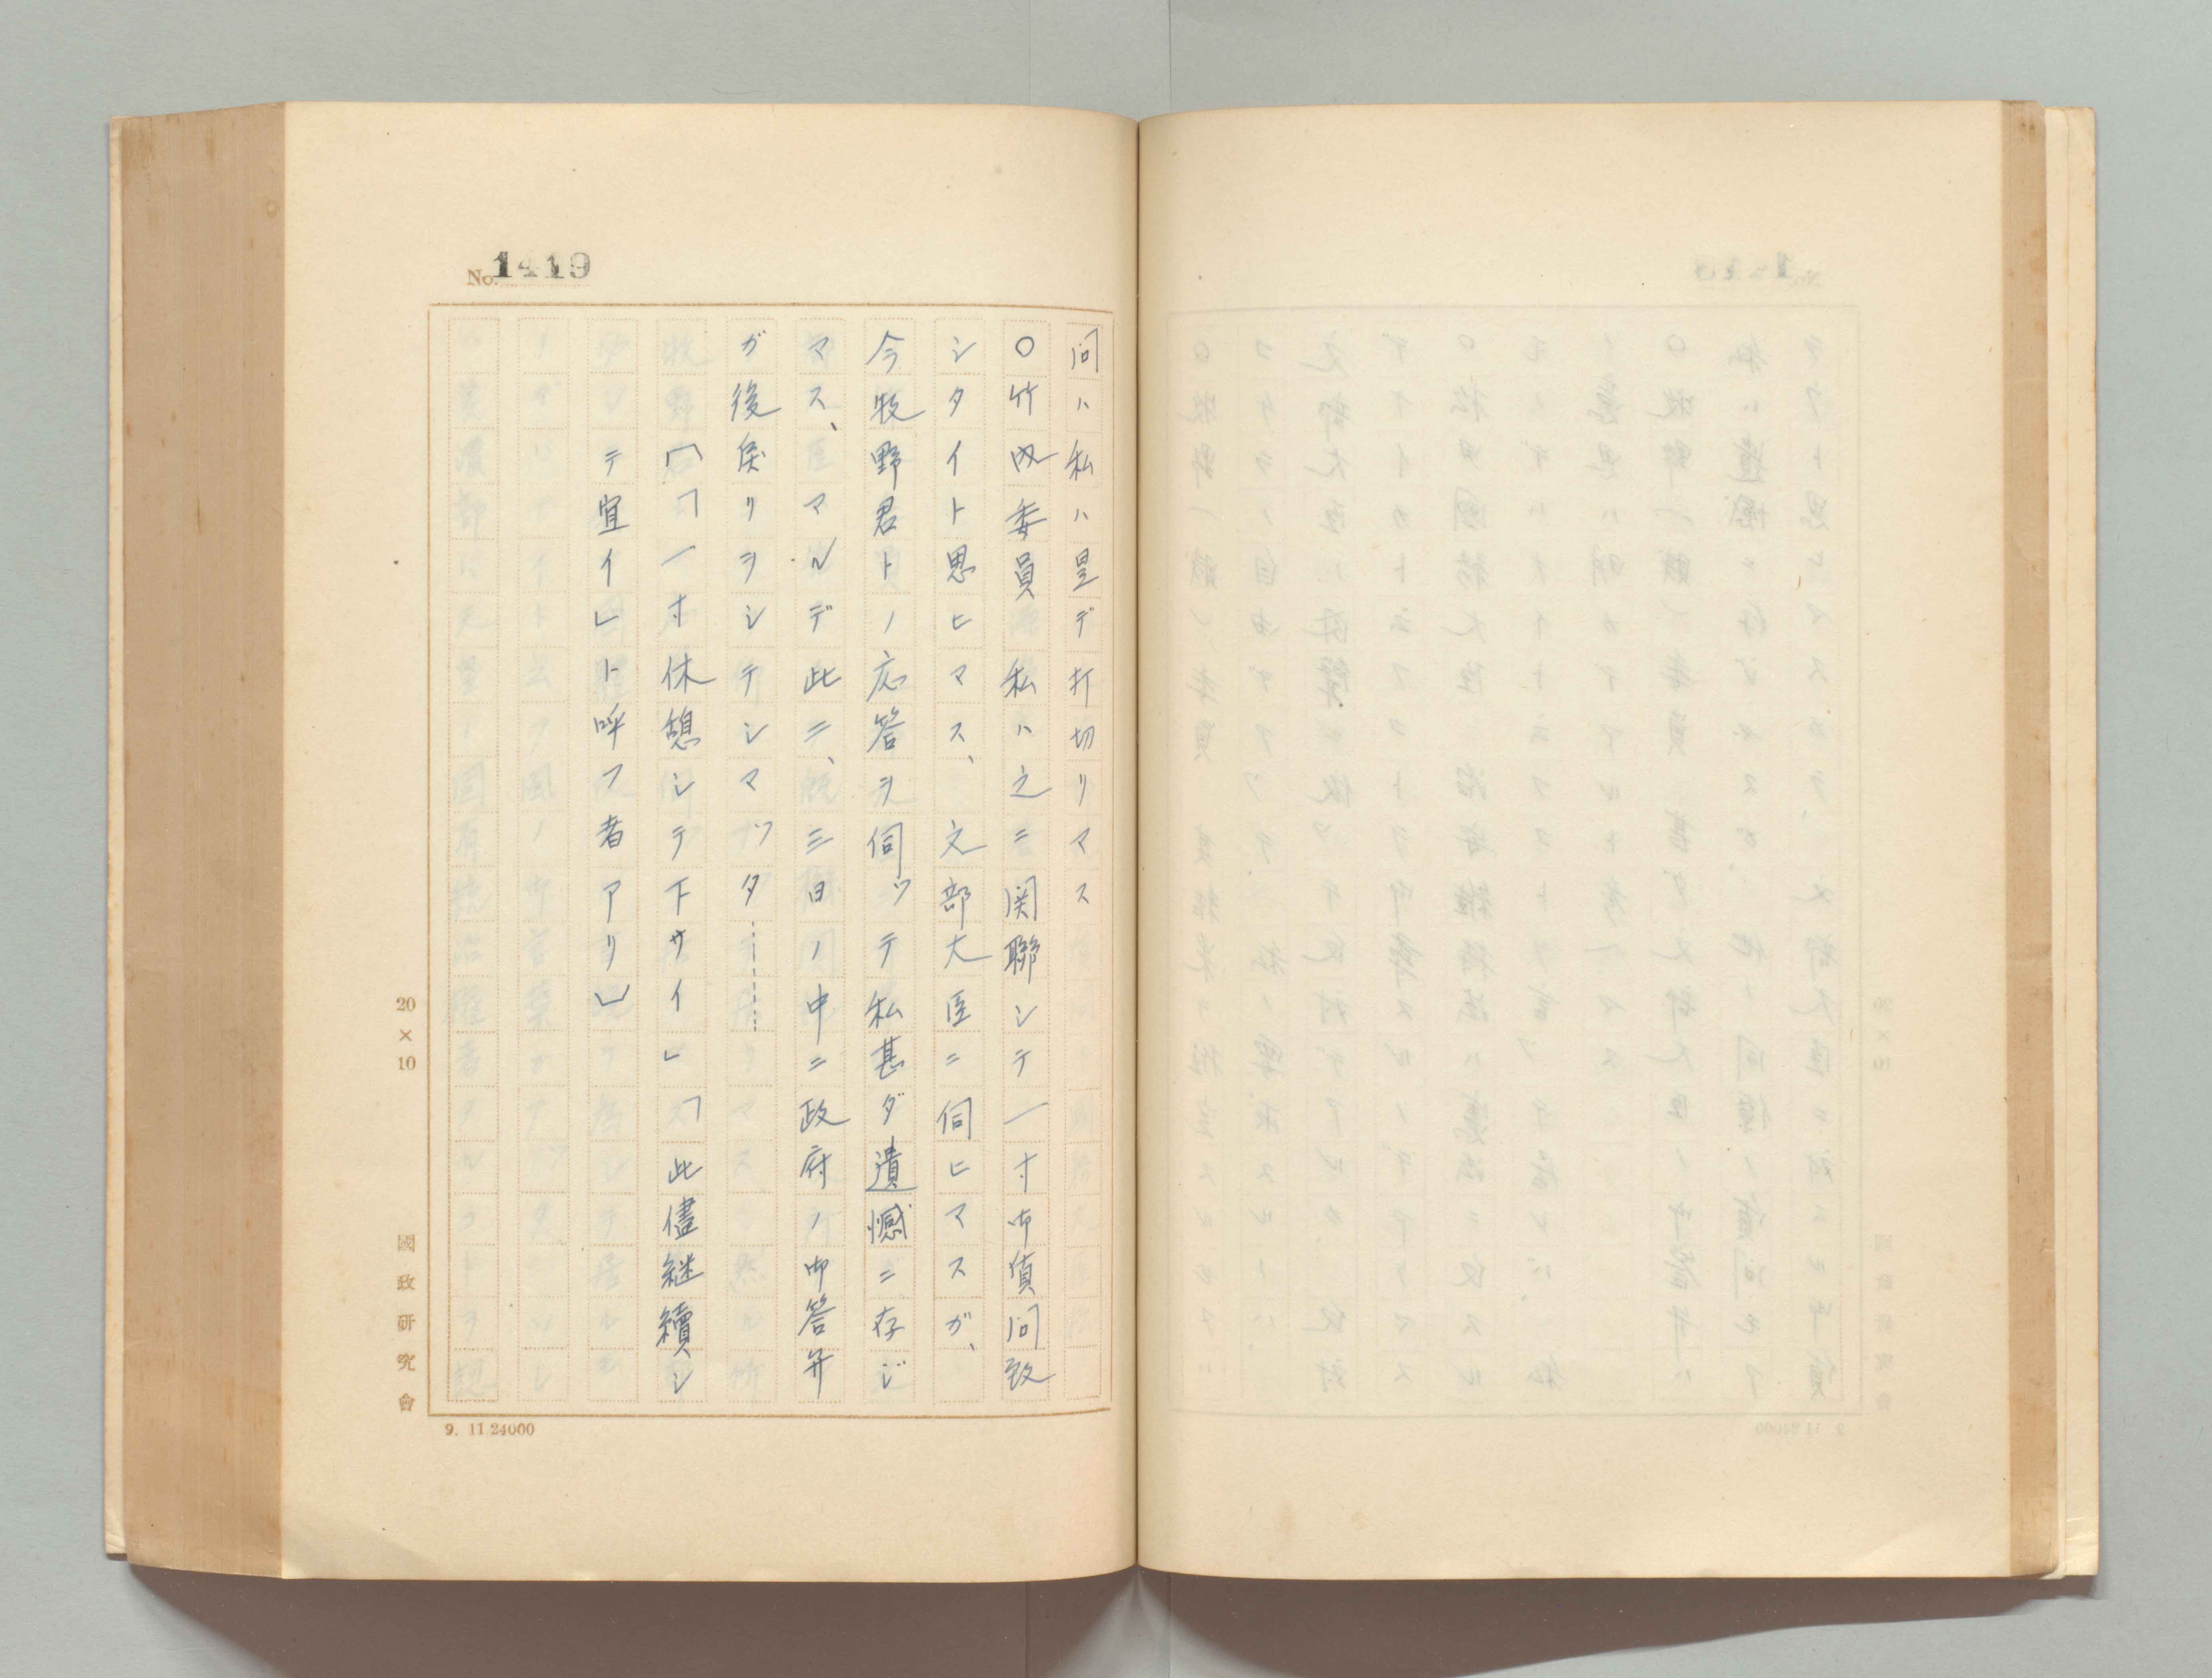 No. 1419
問ハ私ハ是デ打切リマス
○竹内委員　私ハ之ニ関聯シテ一寸御質問致
シタイト思ヒマス、文部大臣ニ伺ヒマスガ、
今牧野君トノ応答ヲ伺ツテ私甚ダ遺憾ニ存ジ
マス、マルデ此ニ、三日ノ中ニ政府ノ御答弁
ガ後戻リヲシテシマツタ………
〔「一寸休憩シテ下サイ」「此儘継続シ
テ宜イ」ト呼フ者アリ〕
20×10
國政研究會
9. 11 24000